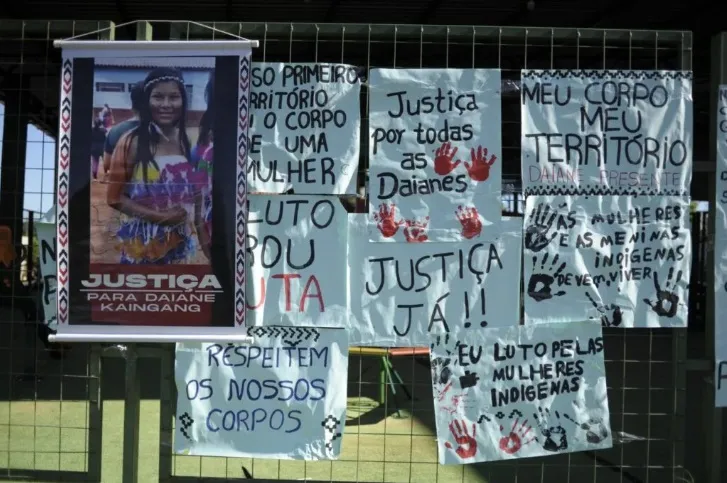 JUSTIÇA
PARA DAIANE
KAINGANG
SO PRIMEIRO
RRITÓRIO
O CORPO
E UMA
MULHER
Justiça
por todas
as
Daianes
MEU CORPO
MEU
TERRITÓRIO
DAIANE PRESENTE
LUTO
OU
UTA
JUSTIÇA
JÁ!!
AS MULHERES
E AS MENINAS
INDÍGENAS
DEVEM VIVER
RESPEITEM
OS NOSSOS
CORPOS
EU LUTO PELAS
MULHERES
INDIGENAS